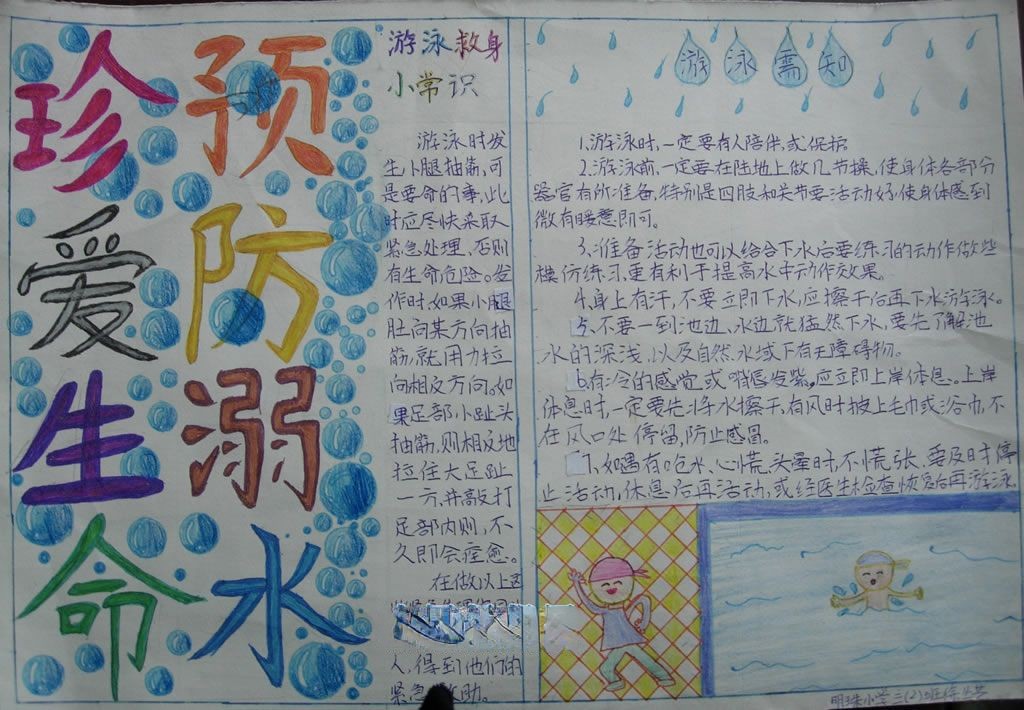 珍爱生命
预防溺水
游泳救身
小常识
游泳时发
生小腿抽筋,可
是要命的事,此
时应尽快采取
紧急处理,否则
有生命危险。发
作时,如果小腿
肚向某方向抽
筋,就用力拉
向相反方向,如
果足部小趾头
抽筋,则相反地
拉住大足趾
一方,并敲打
足部内则,不
久即会痊愈。
在做以上
人,得到他们的
紧急 助。
游泳需知
1.游泳时,一定要有人陪伴或保护
2.游泳前,一定要在陆地上做几节操,使身体各部分
器官有所准备,特别是四肢和关节要活动好使身体感到
微有暖意即可。
3.准备活动也可以结合下水后要练习的动作做些
模仿练习,更有利于提高水中动作效果。
4.身上有汗,不要立即下水,应擦干后再下水游泳。
5.不要一到池边、水边就猛然下水,要先了解池
水的深浅,以及自然水域下有无障碍物。
6.有冷的感觉或嘴唇发紫,应立即上岸休息。上岸
休息时,一定要先将水擦干,有风时披上毛巾或浴巾,不
在风口处停留,防止感冒。
7.如遇有呛水、心慌、头晕时,不慌张,要及时停
止活动,休息后再活动,或经医生检查恢复后再游泳
明珠小学三(2)班